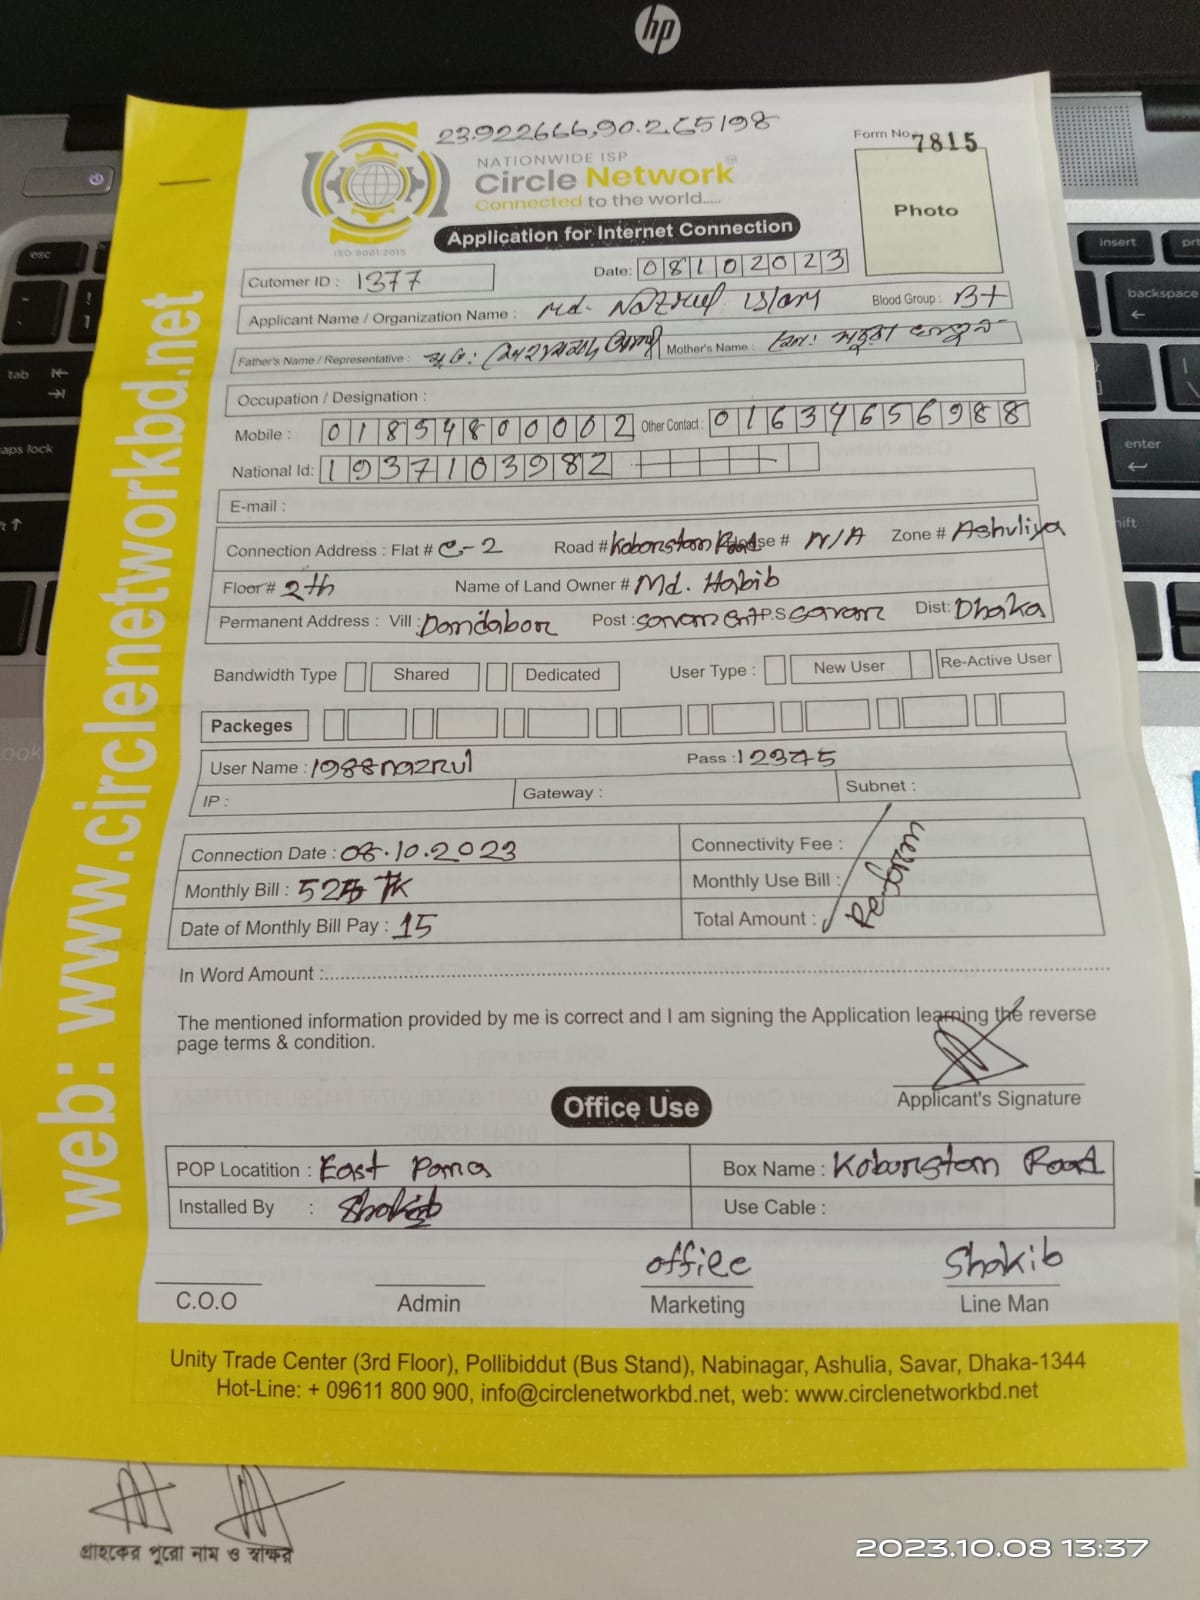 hp
23.922666,90.265198
NATIONWIDE ISP
Circle Network™
Connected to the world.....
ISO 9001:2015
Form No. 7815
Photo
Application for Internet Connection
Cutomer ID : 1377 Date: 08102023
Applicant Name / Organization Name : Md. Nazrul Islam Blood Group : B+
Father's Name / Representative : Mother's Name :
Occupation / Designation :
Mobile : 01854800002 Other Contact : 01634656988
National Id: 1937103982
E-mail :
Connection Address : Flat # C-2 Road # Kobonstan Road House # N/A Zone # Ashuliya
Floor # 2th Name of Land Owner # Md. Habib
Permanent Address : Vill : Dandabor Post : savar cent P.S savar Dist: Dhaka
Bandwidth Type Shared Dedicated User Type : New User Re-Active User
Packeges
User Name : 1988nazrul Pass : 12345
IP : Gateway : Subnet :
Connection Date : 08.10.2023 Connectivity Fee :
Monthly Bill : 525 TK Monthly Use Bill :
Date of Monthly Bill Pay : 15 Total Amount :
Re-form
In Word Amount :
The mentioned information provided by me is correct and I am signing the Application learning the reverse
page terms & condition.
Applicant's Signature
Office Use
POP Locatition : East Para Box Name : Kobonstan Road
Installed By : Shakib Use Cable :
office Shakib
C.O.O Admin Marketing Line Man
Unity Trade Center (3rd Floor), Pollibiddut (Bus Stand), Nabinagar, Ashulia, Savar, Dhaka-1344
Hot-Line: + 09611 800 900, info@circlenetworkbd.net, web: www.circlenetworkbd.net
web: www.circlenetworkbd.net
গ্রাহকের পুরো নাম ও স্বাক্ষর
2023.10.08 13:37
esc
tab
caps lock
insert
prt
backspace
enter
shift